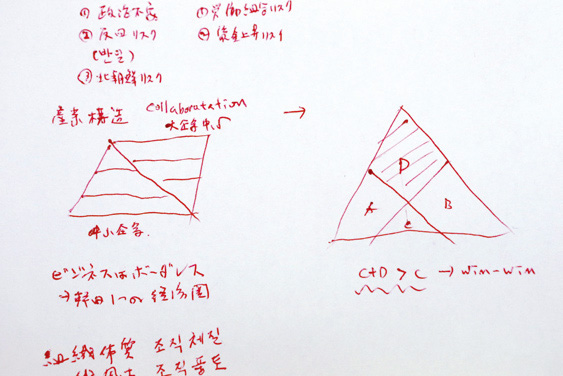 ① 政治不安
② 反日リスク
(반일)
③ 北朝鮮リスク
① 労働組合リスク
② 賃金上昇リスク
産業構造 collaboratation
大企業中心
中小企業
→
D
A
B
C
C+D > C → win-win
ビジネスはボーダレス
→ 韓日1つの経済圏
組織体質 조직체질
조직풍토